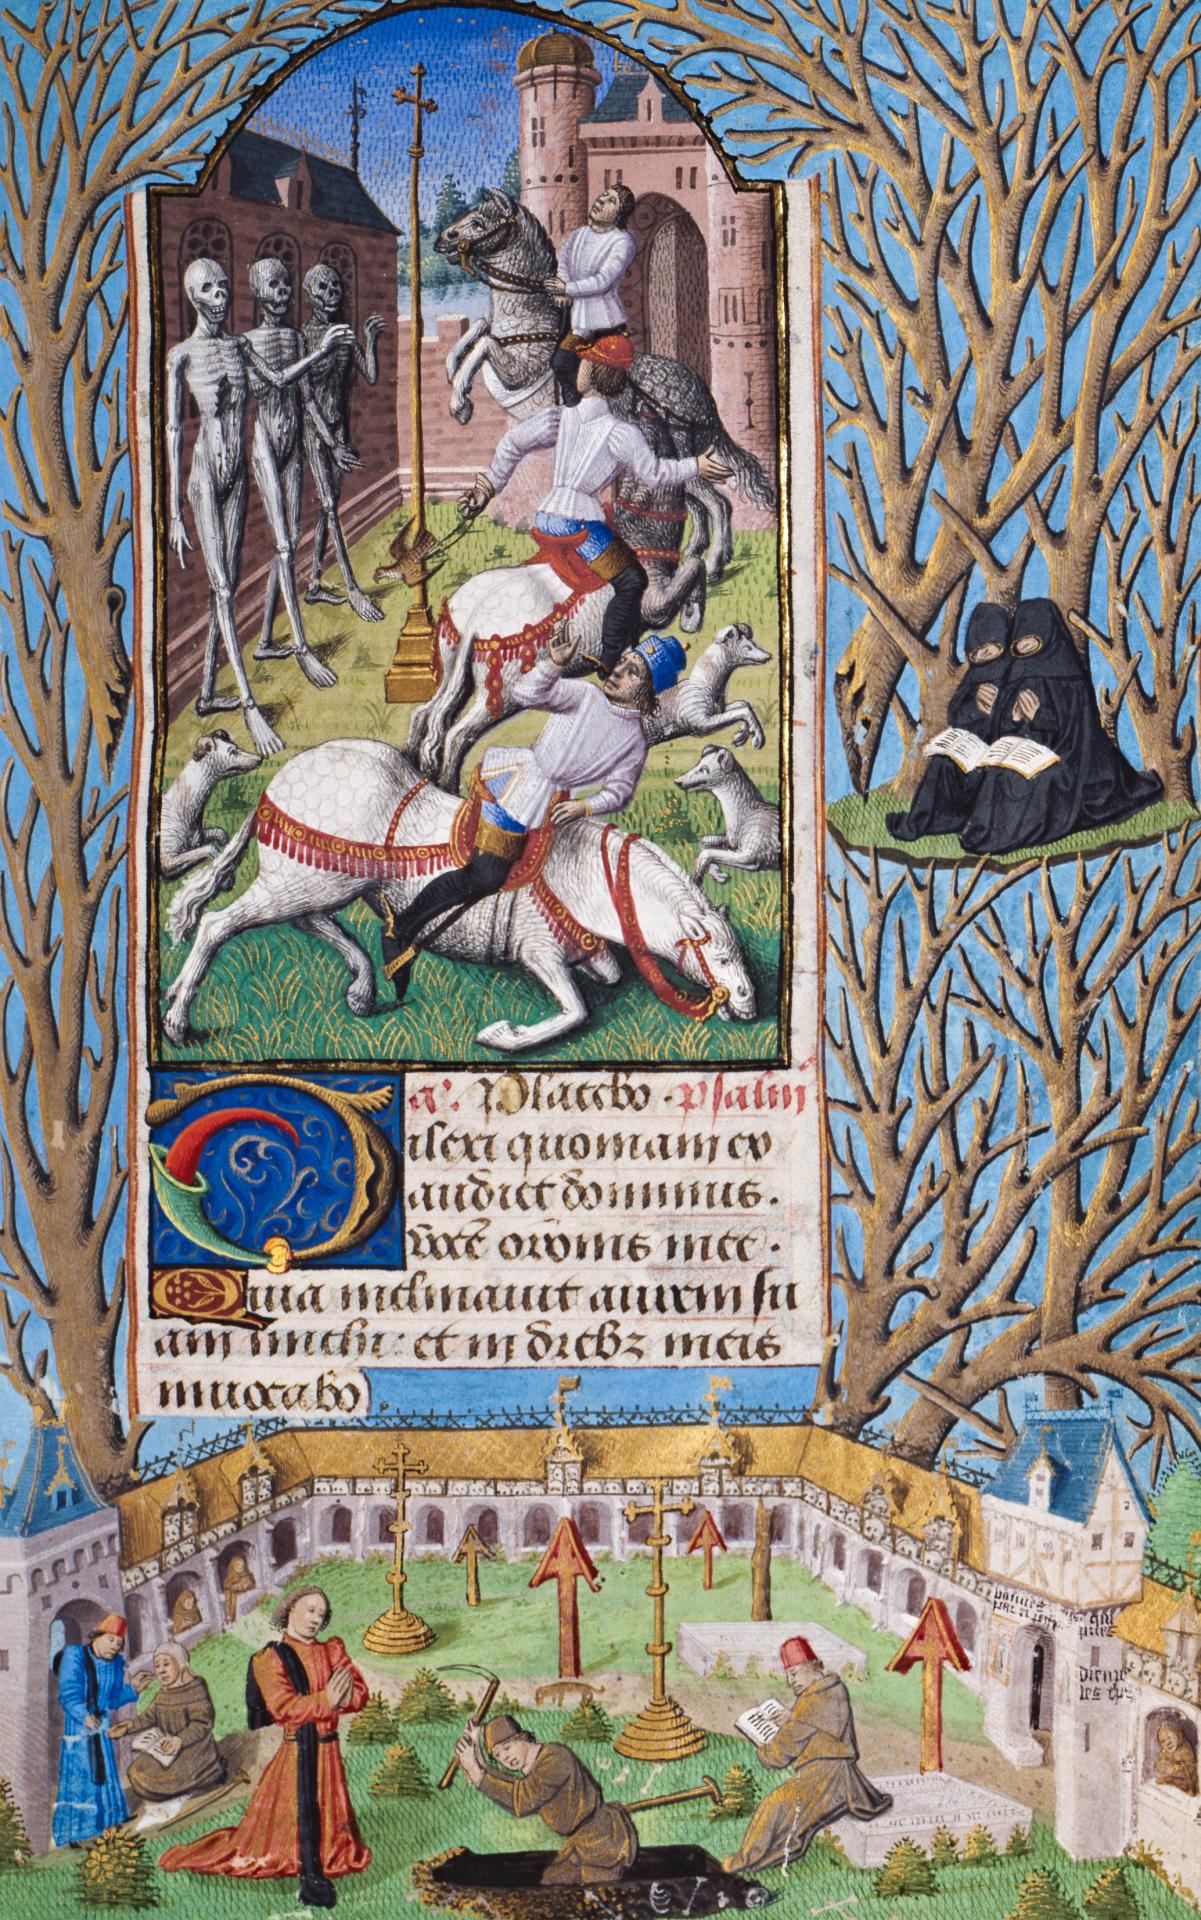 a'. Placebo. psalm
ilexi quoniam ex
audiet dominus.
voce orōnis mee.
Quia inclinauit aurem su
am michi: et in diebz meis
inuocabo